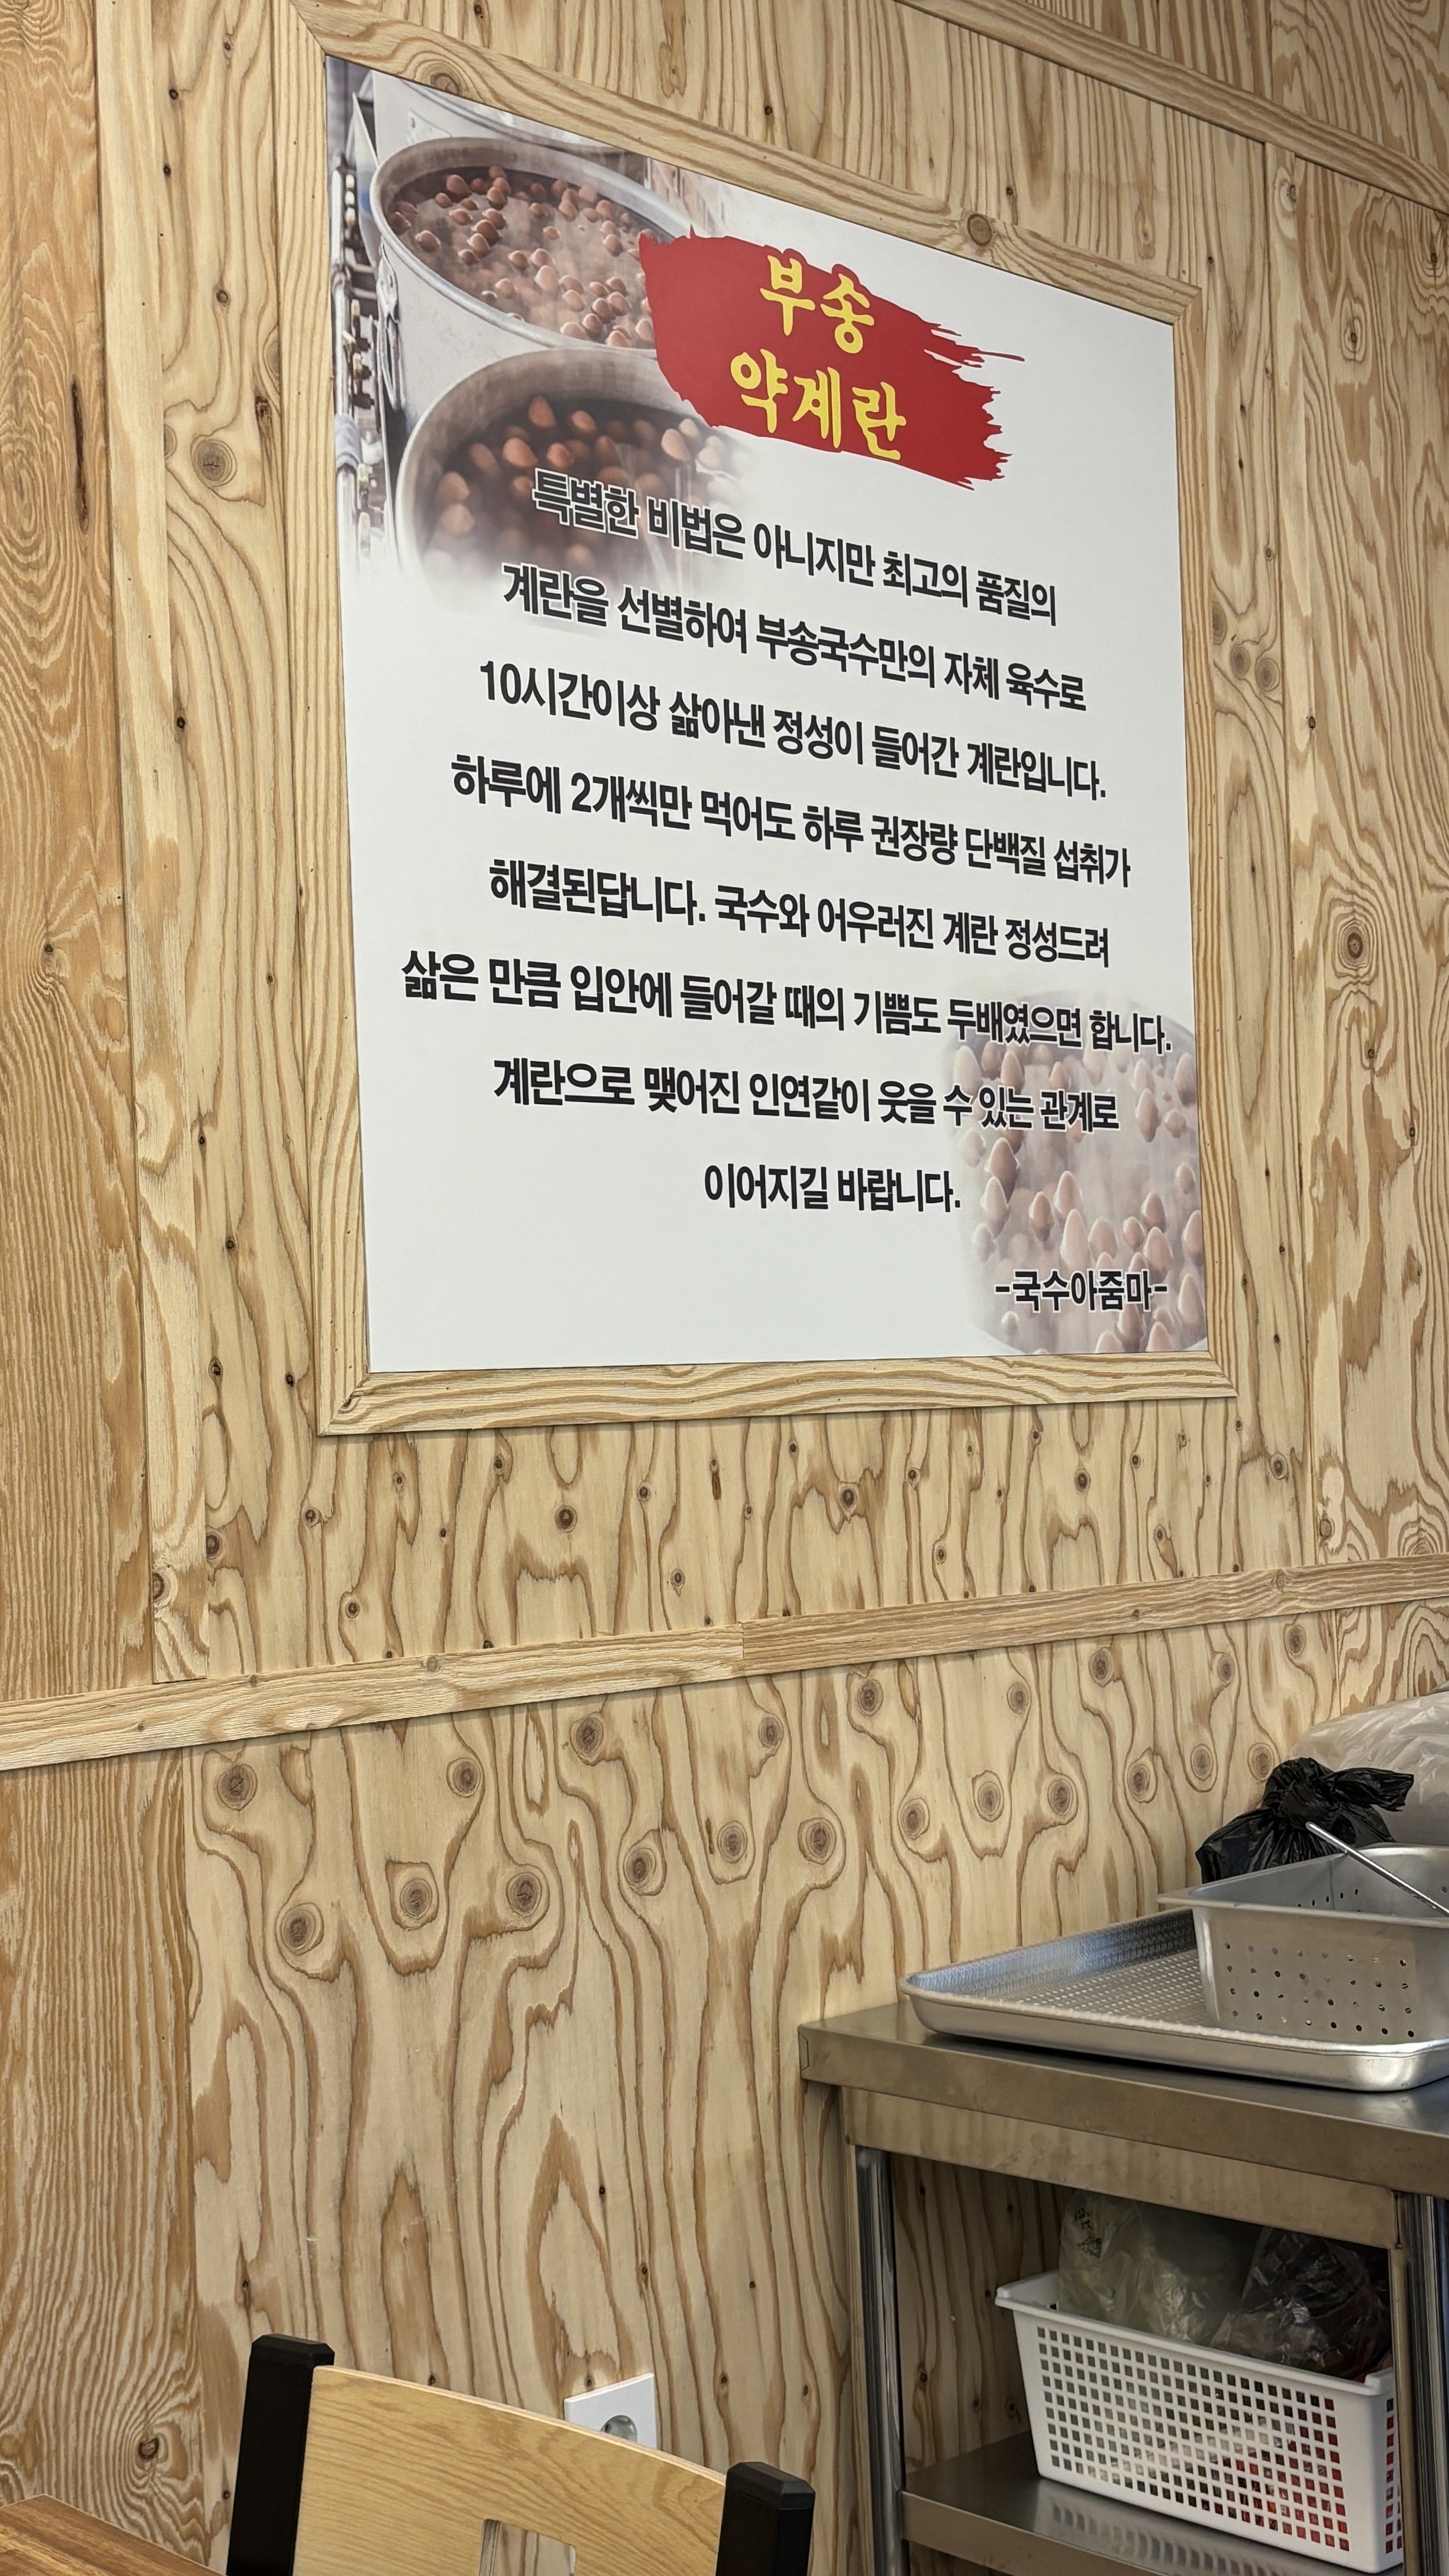 부송
약계란
특별한 비법은 아니지만 최고의 품질의
계란을 선별하여 부송국수만의 자체 육수로
10시간이상 삶아낸 정성이 들어간 계란입니다.
하루에 2개씩만 먹어도 하루 권장량 단백질 섭취가
해결된답니다. 국수와 어우러진 계란 정성드려
삶은 만큼 입안에 들어갈 때의 기쁨도 두배였으면 합니다.
계란으로 맺어진 인연같이 웃을 수 있는 관계로
이어지길 바랍니다.
-국수아줌마-